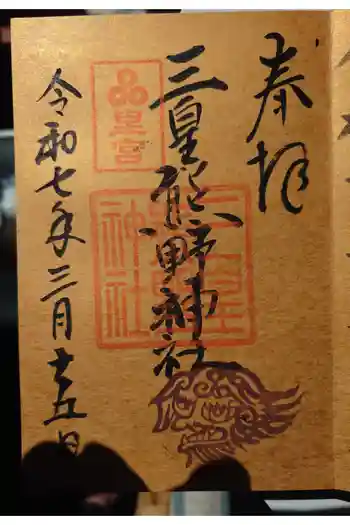 奉拝
三皇熊野神社
三皇宮
令和七年三月十五日